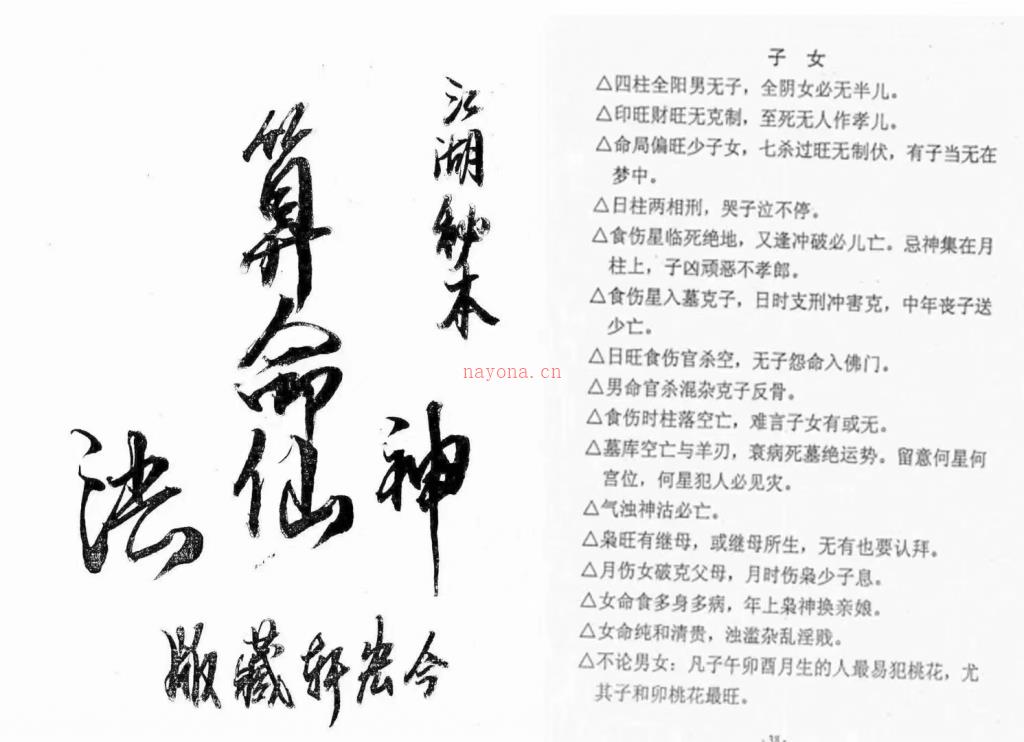 江湖秘本
算命仙
神
法
今宏轩藏版
nayona.cn
子 女
△四柱全阳男无子，全阴女必无半儿。
△印旺财旺无克制，至死无人作孝儿。
△命局偏旺少子女，七杀过旺无制伏，有子当无在
梦中。
△日柱两相刑，哭子泣不停。
△食伤星临死绝地，又逢冲破必儿亡。忌神集在月
柱上，子凶顽恶不孝郎。
△食伤星入墓克子，日时支刑冲害克，中年丧子送
少亡。
△日旺食伤官杀空，无子怨命入佛门。
△男命官杀混杂克子反骨。
△食伤时柱落空亡，难言子女有或无。
△墓库空亡与羊刃，衰病死墓绝运势。留意何星何
宫位，何星犯人必见灾。
△气浊神沽必亡。
△枭旺有继母，或继母所生，无有也要认拜。
△月伤女破克父母，月时伤枭少子息。
△女命食多身多病，年上枭神换亲娘。
△女命纯和清贵，浊滥杂乱淫贱。
△不论男女：凡子午卯酉月生的人最易犯桃花，尤
其子和卯桃花最旺。